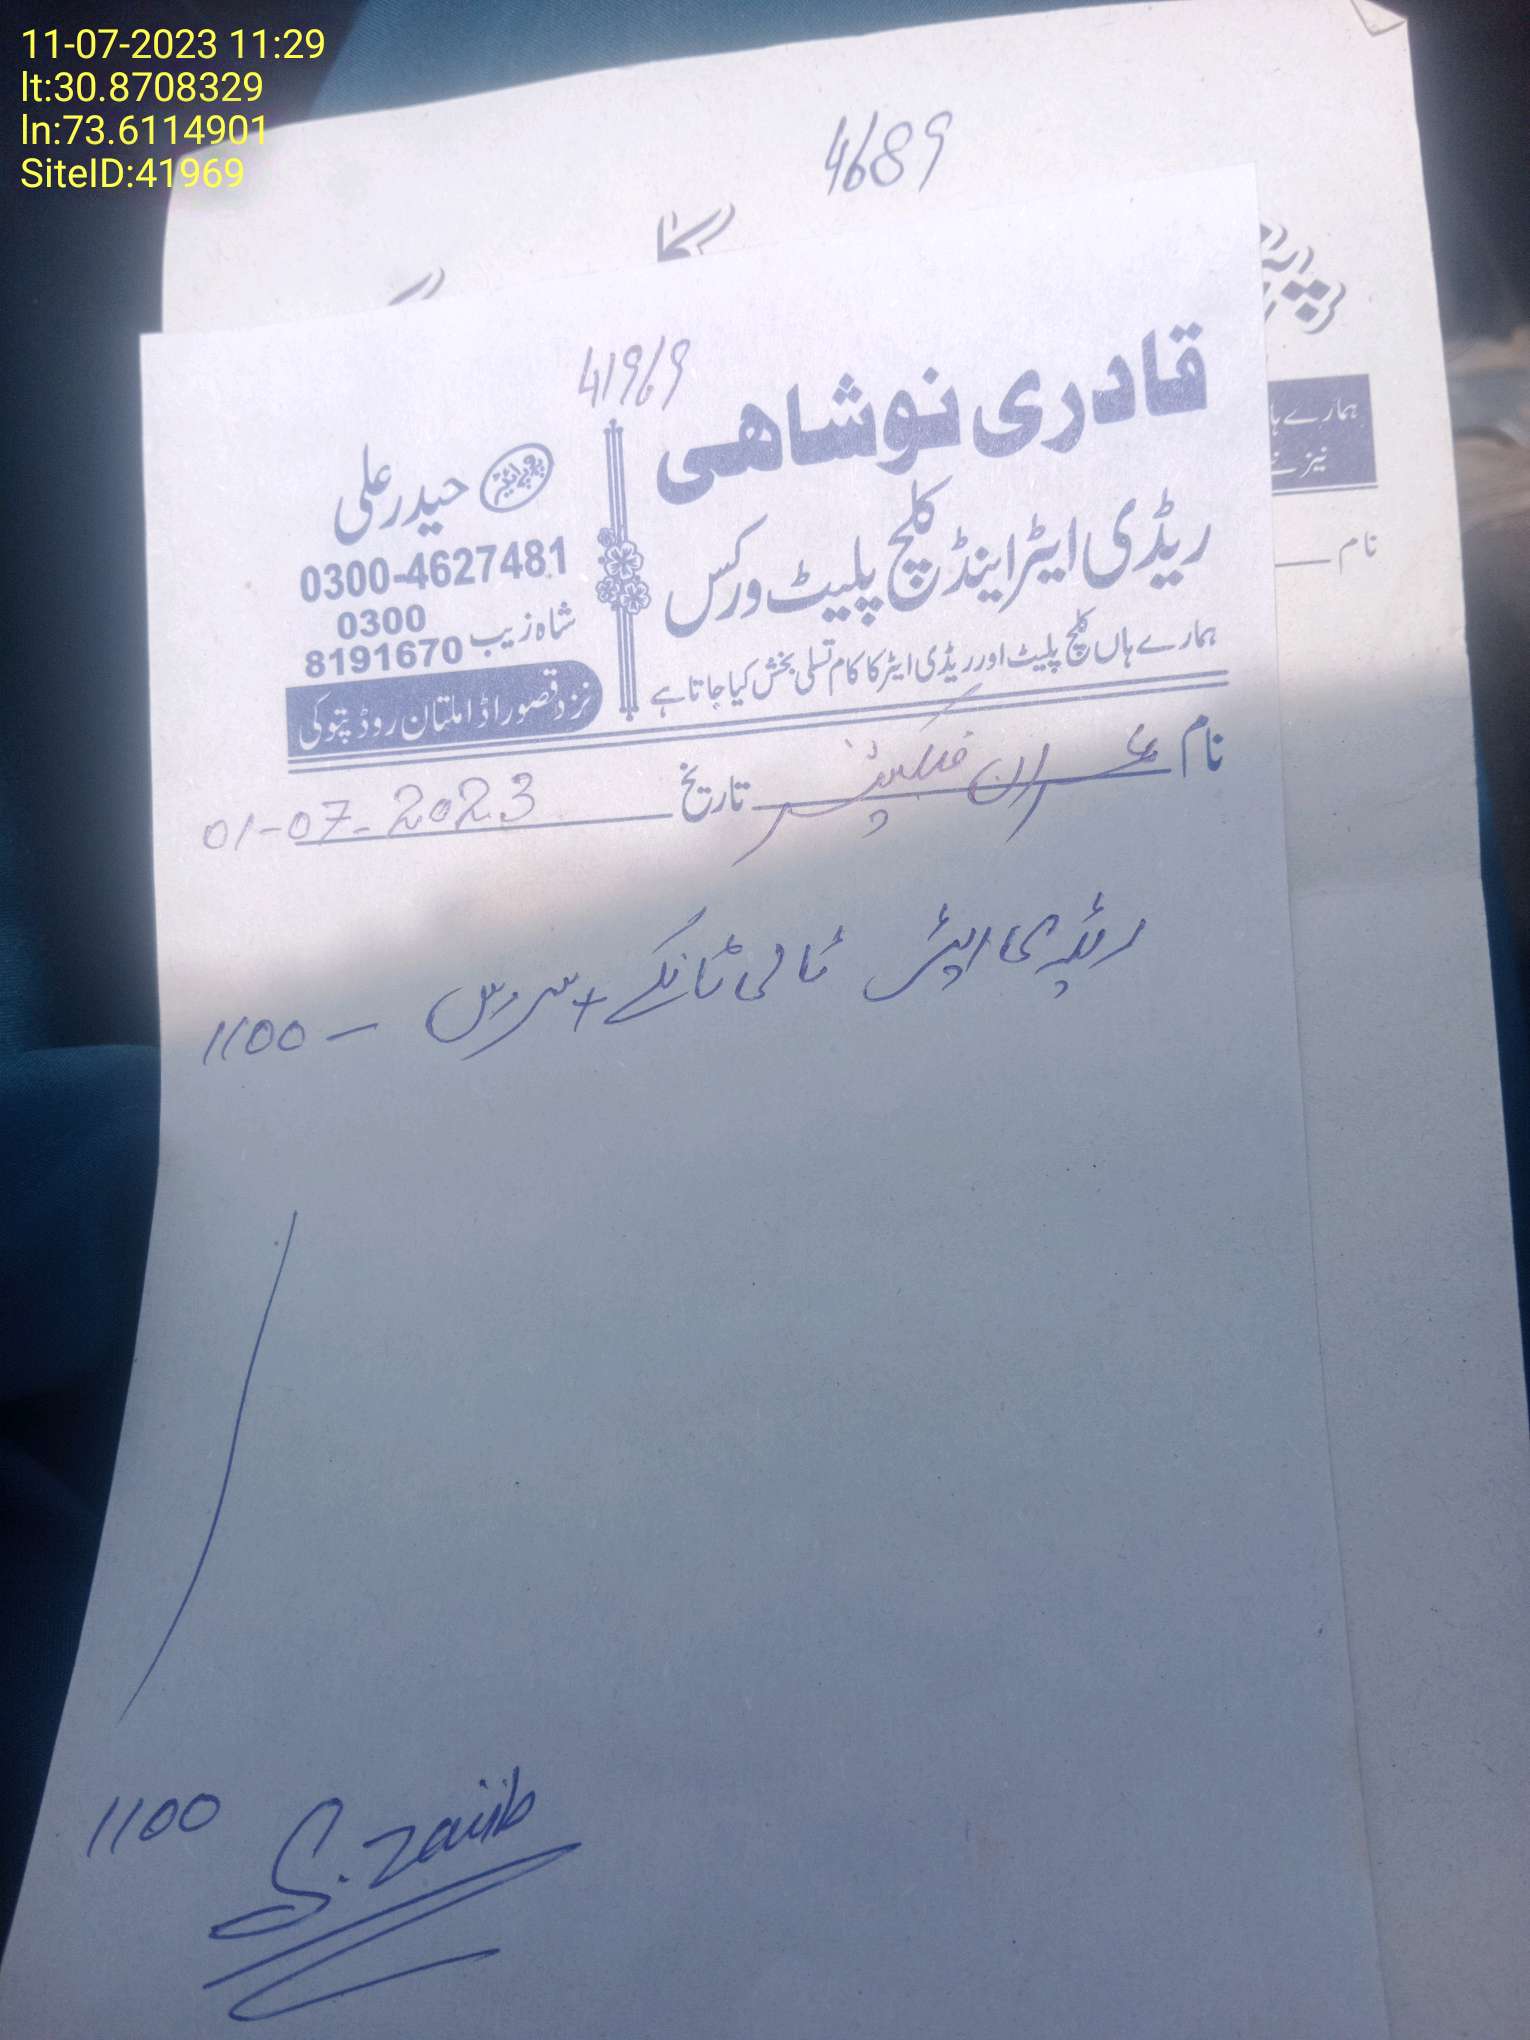 11-07-2023 11:29
lt:30.8708329
ln:73.6114901
SiteID:41969
4689
41969
قادری نوشاہی
ریڈی ایٹر اینڈ کلچ پلیٹ ورکس
ہمارے ہاں کلچ پلیٹ اور ریڈی ایٹر کا کام تسلی بخش کیا جاتا ہے
پروپرائیٹر حیدر علی
0300-4627481
شاہ زیب 0300
8191670
نزد قصور اڈا ملتان روڈ پتوکی
ہمارے ہاں
نیز
نام
نام عمران تاریخ 01-07-2023
ریڈی ایٹر ٹانکے + سروس - 1100
1100
S.Zaib